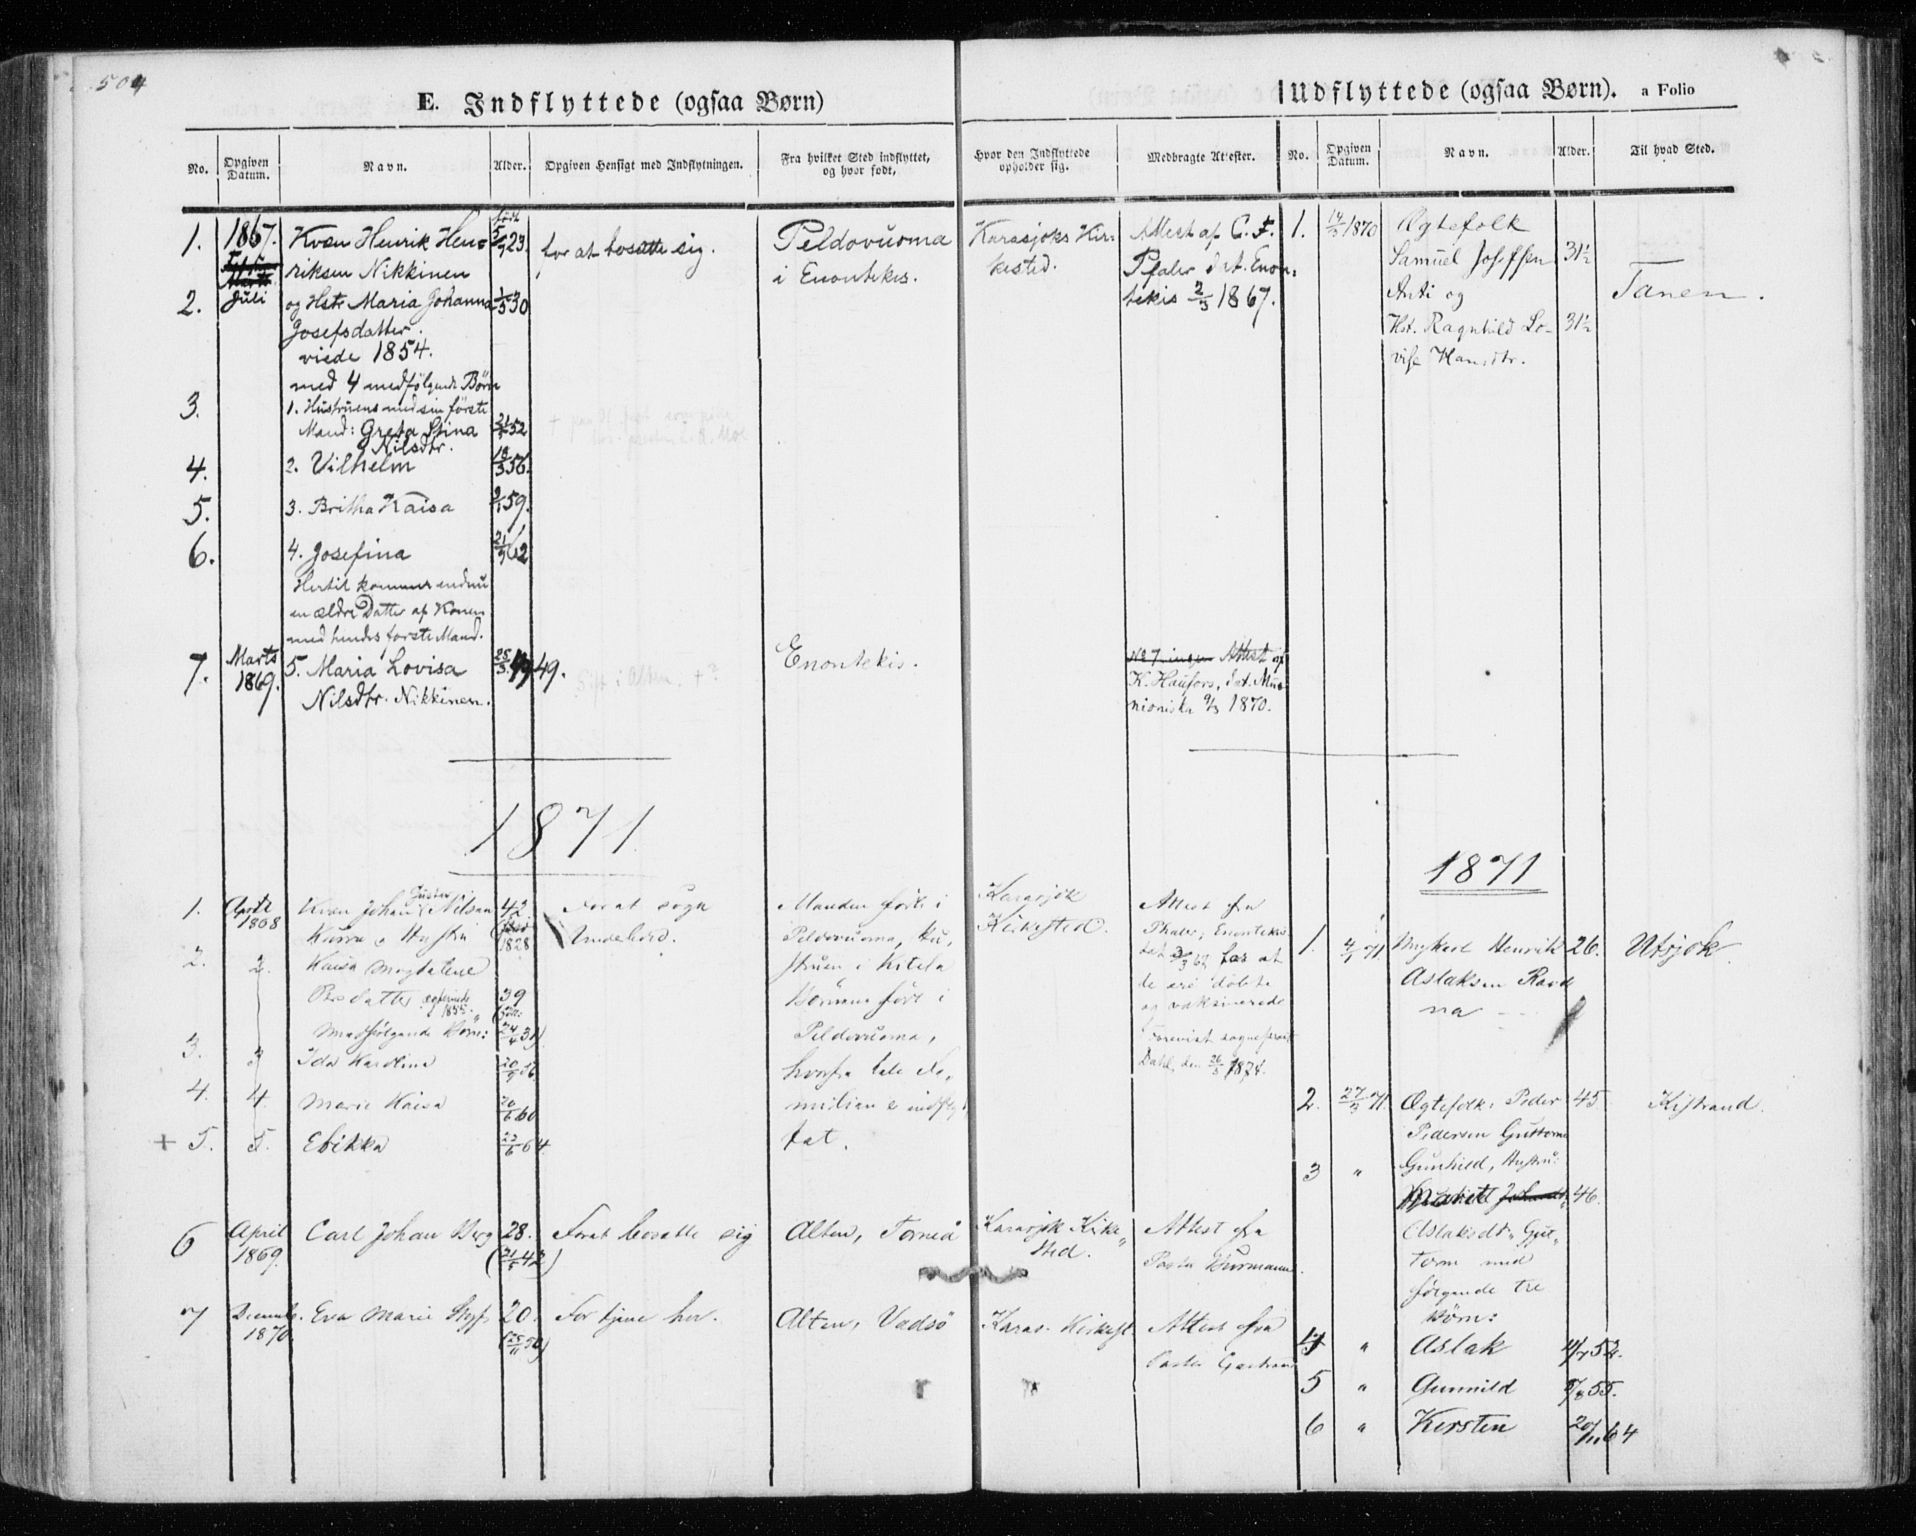 504
E. Indflyttede (ogsaa Børn)
No.
Opgiven Datum.
Navn.
Alder.
Opgiven Hensigt med Indflytningen.
Fra hvilket Sted indflyttet, og hvor født,
Hvor den Indflyttede opholder sig.
Medbragte Attester.
1.
1867.
Juli
Kvæn Henrik Hen=
riksen Nikkinen
født
23.
for at bosætte sig.
Peldovuoma
i Enontekis.
Karasjoks Kir=
kested.
Attest af C. F.
Pfaler dat. Enon=
tekis 2/3 1867.
2.
og Hstr. Maria Johanna
Josefsdatter.
viede 1854.
med 4 medfølgende Børn
1/5 30
3.
1. Hustruens med sin første
Mand: Greta Stina
Nilsdtr.
52
4.
2. Vilhelm
56.
5.
3. Britha Kaisa
59.
6.
4. Josefina
62
Hertil kommer endnu
en ældre Datter af Konen
med hendes første Mand.
7.
Marts
1869.
5. Maria Lovisa
Nilsdtr. Nikkinen.
25/3 49.
Gift i Alten. + ?
Enontekis.
Attest af
K. Haufors, dat. Muo=
nioniska 9/3 1870.
1871
1.
April
1868
Kvæn Johan Gustav Nilsen
Hustru
42
(født
1828
For at søge
Underhold.
Manden født i
Peldovuoma, Hu,
struen i Kitela
Børnene født i
Peldovuoma,
hvorfra hele Fa,
milien e indflyt
tat.
Karasjok
Kirkested.
Attest fra
Phaler, Enontekis
dat 2/3 67 for at
de ere døbte
og vaksinerede
Forevist sognepræst
Dahl, den 26/8 1874.
2.
2.
Kaisa Magdalene
Persdatter
1855.
Medfølgende Børn:
39
31)
3.
3
Ida Karolina
56
4.
4.
Marie Kaisa
20/6 60
+ 5.
5.
Ebikka
23/6 64
6
April
1869.
Carl Johan Berg
28.
(21/5 42)
Forat bosætte sig
Alten, Torneå
Karasjok Kirke
sted.
Attest fra
Pastor Burmann.
7
Decemb.
1870
Eva Marie
20.
(25/11 50)
For tjene her.
Alten, Vadsö
Karas. Kirkest
Attest fra
Pastor
Udflyttede (ogsaa Børn).
a Folio
No.
Opgiven Datum.
Navn.
Alder.
Til hvad Sted.
1.
14/3 1870
Ægtefolk
Samuel Joseffsen
Anti og
Hst. Ragnhild Lo-
vise Hansdtr.
31½
31½
Tanen.
1871
1.
4/1 71
Ungkarl Henrik
Aslaksen Ravd
na
26.
Utsjok
2.
27/3 71.
Ægtefolk: Peder
Pedersen Guttorm
45
Kistrand.
3
"
Gunhild, Hustru:
46.
Aslaksdt. Gut,
torm med
følgende tre
Børn:
4
"
Aslak
52.
5
"
Gunnild
55.
6
"
Kersten
20/11 64